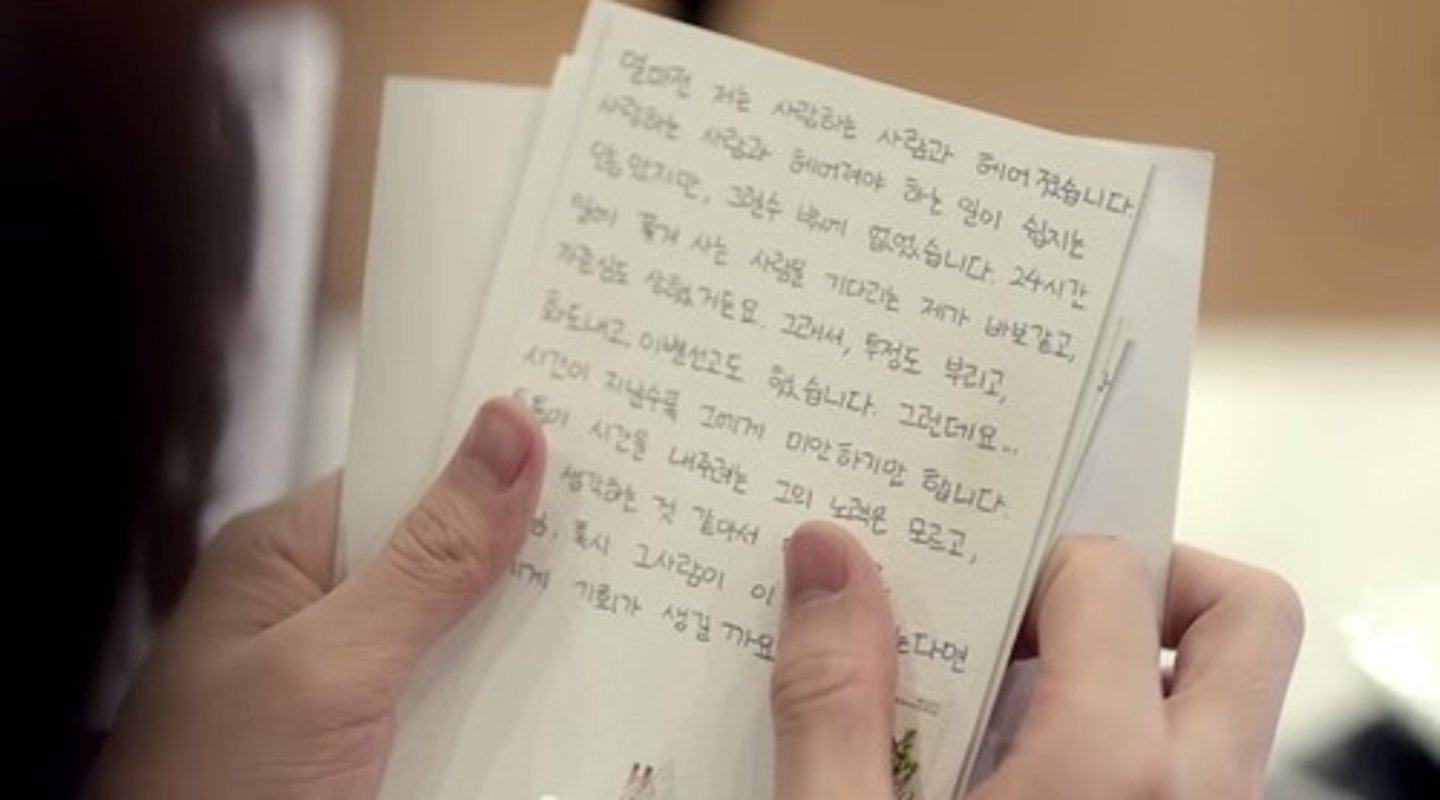 얼마전 저는 사랑하는 사람과 헤어졌습니다.
사랑하는 사람과 헤어져야 하는 일이 쉽지는
않지만, 그럴수 밖에 없었습니다. 24시간
일에 쫓겨 사는 사람을 기다리는 제가 바보같고,
자존심도 상했거든요. 그래서, 투정도 부리고,
화도내고, 이별선고도 했습니다. 그런데요...
시간이 지날수록 그에게 미안하기만 합니다.
시간을 내주려는 그의 노력은 모르고,
생각하는 것 같아서
혹시 그사람이 이 는다면
에게 기회가 생길까요